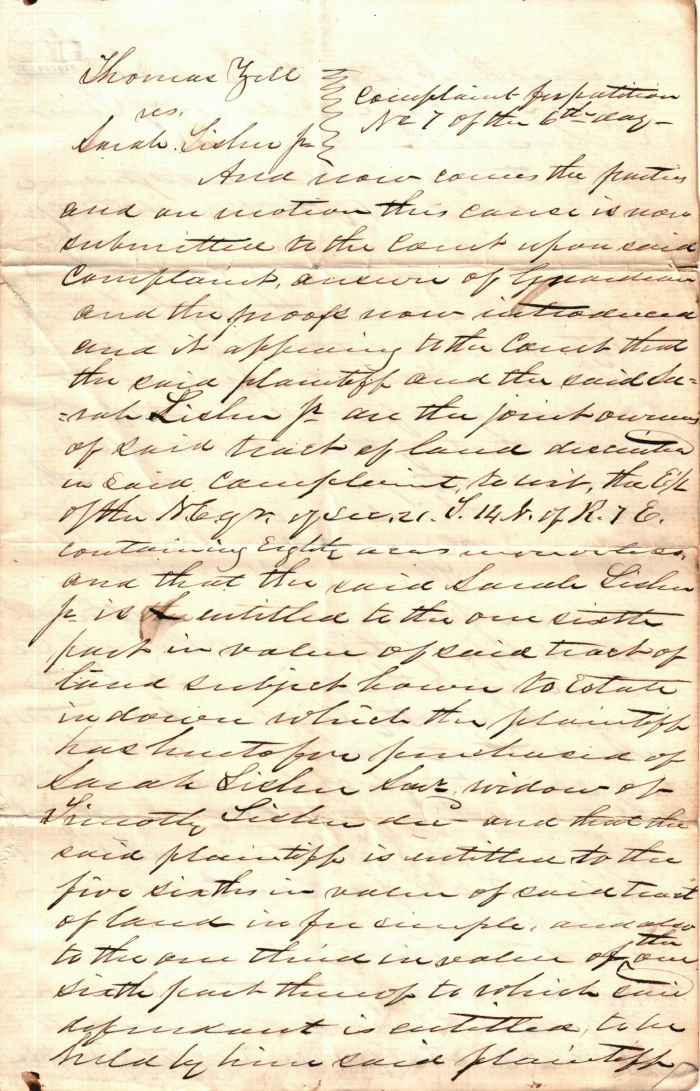 Thomas Zell
vs.
Sarah Lisher Jr
Complaint for partition
No 7 of the 6th day
And now comes the parties
and on motion this cause is now
submitted to the Court upon said
Complaint, answer of Guardian
and the proofs now introduced
and it appearing to the Court that
the said plaintiff and the said Sa-
=rah Lisher Jr are the joint owners
of said tract of land described
in said complaint, to wit, the E/2
of the N.E. qr. of Sec. 21. T. 14. N. of R. 7 E.
containing Eighty acres more or less,
and that the said Sarah Lisher
Jr is entitled to the one sixth
part in value of said tract of
land subject however to Estate
in dower which the plaintiff
has heretofore purchased of
Sarah Lisher Senr. widow of
Timothy Lisher decd and that the
said plaintiff is entitled to the
five sixths in value of said tract
of land in fee simple, and also
to the one third in value of the one
sixth part thereof to which said
defendant is entitled, to be
held by him said plaintiff